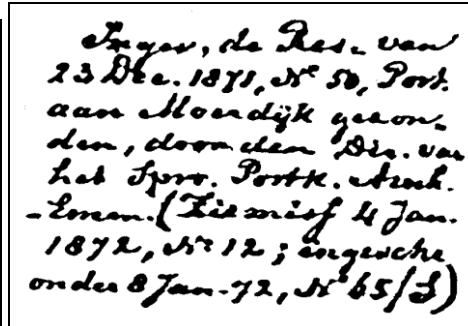 Inger, de Res. van
23 Dec. 1871, Nº 50, Port.
aan Moerdijk gezon-
den, door den Dir. van
het Spro. Postk. Arnh.
-Emm. (Zie misf 4 Jan.
1872, Nº 12; ingesche
onder 8 Jan.-72, Nº 65/S)